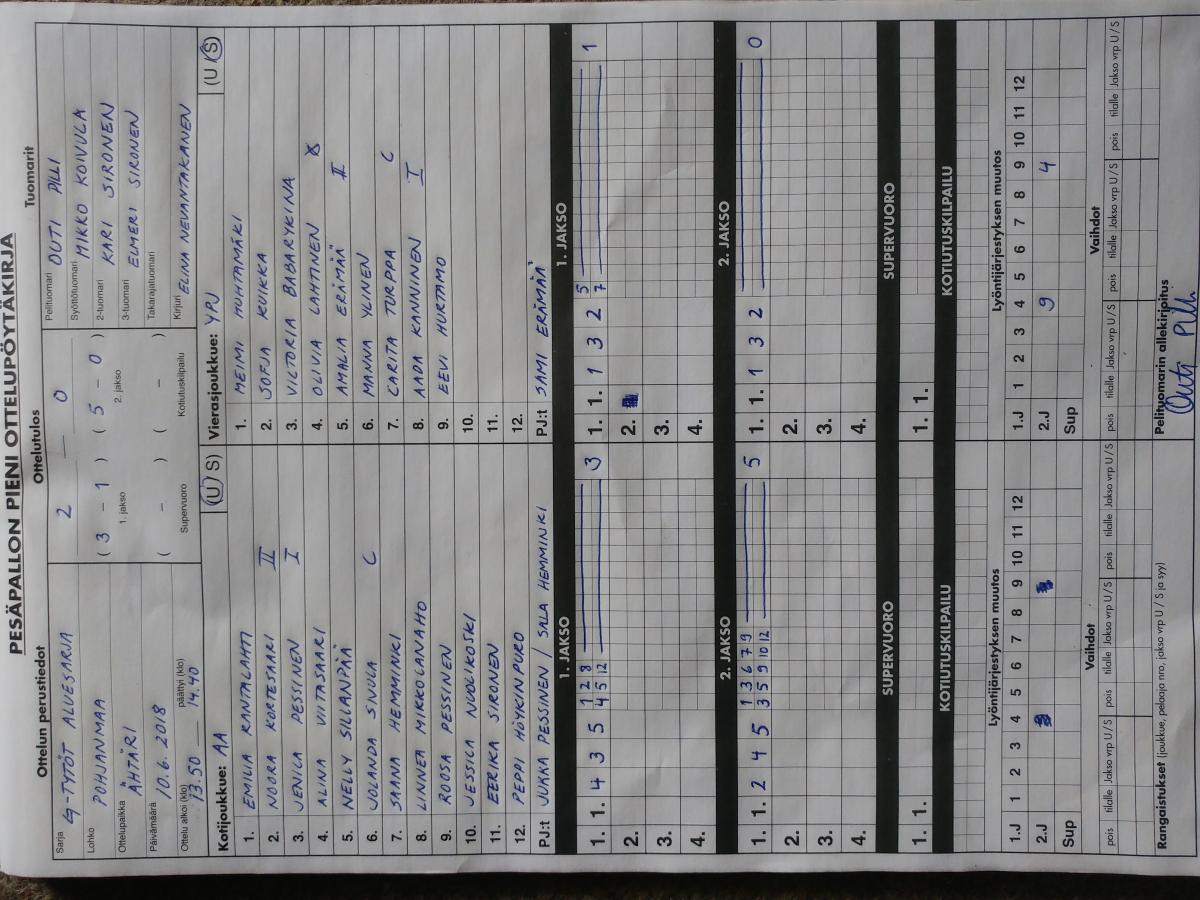 PESÄPALLON PIENI OTTELUPÖYTÄKIRJA
Ottelun perustiedot
Sarja G-TYTÖT ALUESARJA
Lohko POHJANMAA
Ottelupaikka ÄHTÄRI
Päivämäärä 10.6. 2018
Ottelu alkoi (klo) 13.50 päättyi (klo) 14.40
Ottelutulos
2 — 0
( 3 – 1 ) ( 5 – 0 )
1. jakso 2. jakso
( – ) ( – )
Supervuoro Kotiutuskilpailu
Tuomarit
Pelituomari OUTI PILLI
Syöttötuomari MIKKO KOIVULA
2-tuomari KARI SIRONEN
3-tuomari ELMERI SIRONEN
Takarajatuomari
Kirjuri ELINA NEVANTAKANEN
Kotijoukkue: AA (U/S)
1. EMILIA RANTALAHTI
2. NOORA KORTESAARI II
3. JENILA PESSINEN I
4. ALINA VIITASAARI
5. NELLY SILLANPÄÄ
6. JOLANDA SINULA C
7. SAANA HEMMINKI
8. LINNEA MIKKOLANAHO
9. ROOSA PESSINEN
10. JESSICA NUOLIKOSKI
11. EERIKA SIRONEN
12. PEPPI HYKINPURO
PJ:t JUKKA PESSINEN / SALLA HEMMINKI
Vierasjoukkue: YPJ (U/S)
1. MEIMI HUHTAMÄKI
2. SOFJA KUIKKA
3. VICTORIA BABARYKINA
4. OLIVIA LAHTINEN
5. AMALIA ERÄMÄÄ II
6. MANNA YLINEN
7. CARITA TORPPA C
8. AADA KANNINEN I
9. EEVI HURTAMO
10.
11.
12.
PJ:t SAMI ERÄMÄÄ
1. JAKSO
1. 1. 4 3 5 1 2 8 3
4 5 12
2.
3.
4.
1. JAKSO
1. 1. 1 3 2 5 1
7
2.
3.
4.
2. JAKSO
1. 1. 2 4 5 1 3 6 7 9 5
3 5 9 10 12
2.
3.
4.
2. JAKSO
1. 1. 1 3 2 0
2.
3.
4.
SUPERVUORO
1. 1.
SUPERVUORO
1. 1.
KOTIUTUSKILPAILU
KOTIUTUSKILPAILU
Lyöntijärjestyksen muutos
1.J 1 2 3 4 5 6 7 8 9 10 11 12
2.J
Sup
Lyöntijärjestyksen muutos
1.J 1 2 3 4 5 6 7 8 9 10 11 12
2.J 9 4
Sup
Vaihdot
pois tilalle Jakso vrp U / S pois tilalle Jakso vrp U / S pois tilalle Jakso vrp U / S
Vaihdot
pois tilalle Jakso vrp U / S pois tilalle Jakso vrp U / S
Rangaistukset (joukkue, pelaaja nro, jakso vrp U / S ja syy)
Pelituomarin allekirjoitus
Outi Pilli